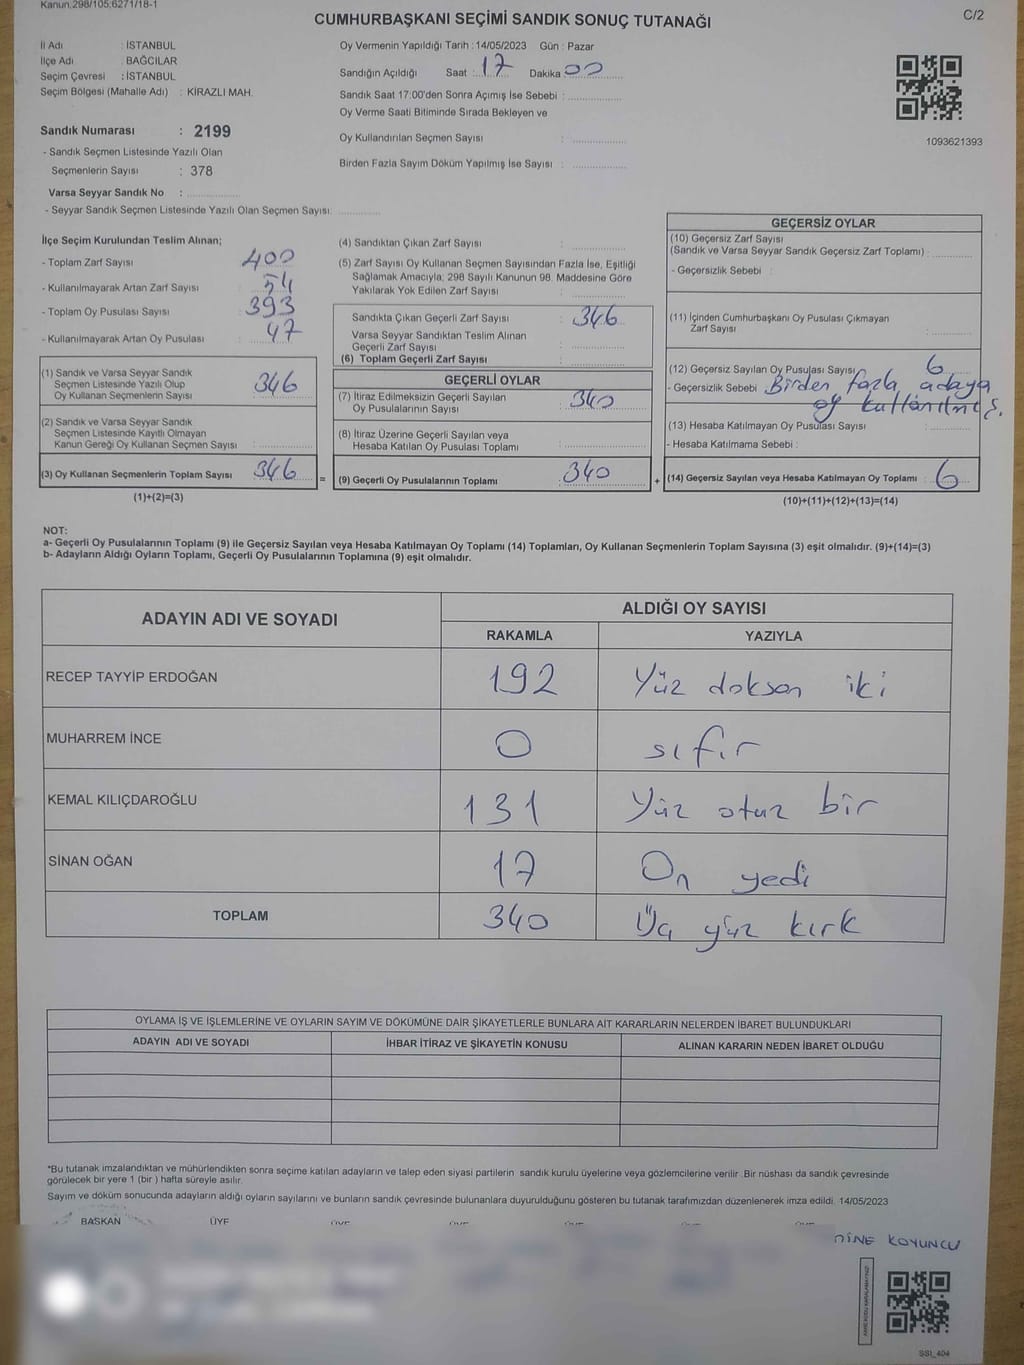 Kanun:298/105,6271/18-1
C/2
CUMHURBAŞKANI SEÇİMİ SANDIK SONUÇ TUTANAĞI
İl Adı : İSTANBUL
İlçe Adı : BAĞCILAR
Seçim Çevresi : İSTANBUL
Seçim Bölgesi (Mahalle Adı) : KİRAZLI MAH.
Sandık Numarası : 2199
- Sandık Seçmen Listesinde Yazılı Olan
Seçmenlerin Sayısı : 378
Varsa Seyyar Sandık No :
- Seyyar Sandık Seçmen Listesinde Yazılı Olan Seçmen Sayısı:
Oy Vermenin Yapıldığı Tarih : 14/05/2023 Gün : Pazar
Sandığın Açıldığı Saat : 17 Dakika : 00
Sandık Saat 17:00'den Sonra Açımış İse Sebebi :
Oy Verme Saati Bitiminde Sırada Bekleyen ve
Oy Kullandırılan Seçmen Sayısı :
Birden Fazla Sayım Döküm Yapılmış İse Sayısı :
1093621393
İlçe Seçim Kurulundan Teslim Alınan;
- Toplam Zarf Sayısı : 400
- Kullanılmayarak Artan Zarf Sayısı : 54
- Toplam Oy Pusulası Sayısı : 393
- Kullanılmayarak Artan Oy Pusulası : 47
(1) Sandık ve Varsa Seyyar Sandık
Seçmen Listesinde Yazılı Olup
Oy Kullanan Seçmenlerin Sayısı : 346
(2) Sandık ve Varsa Seyyar Sandık
Seçmen Listesinde Kayıtlı Olmayan
Kanun Gereği Oy Kullanan Seçmen Sayısı :
(3) Oy Kullanan Seçmenlerin Toplam Sayısı : 346
(1)+(2)=(3)
(4) Sandıktan Çıkan Zarf Sayısı :
(5) Zarf Sayısı Oy Kullanan Seçmen Sayısından Fazla İse, Eşitliği
Sağlamak Amacıyla; 298 Sayılı Kanunun 98. Maddesine Göre
Yakılarak Yok Edilen Zarf Sayısı :
Sandıkta Çıkan Geçerli Zarf Sayısı : 346
Varsa Seyyar Sandıktan Teslim Alınan
Geçerli Zarf Sayısı :
(6) Toplam Geçerli Zarf Sayısı :
GEÇERLİ OYLAR
(7) İtiraz Edilmeksizin Geçerli Sayılan
Oy Pusulalarının Sayısı : 340
(8) İtiraz Üzerine Geçerli Sayılan veya
Hesaba Katılan Oy Pusulası Toplamı :
= (9) Geçerli Oy Pusulalarının Toplamı : 340
GEÇERSİZ OYLAR
(10) Geçersiz Zarf Sayısı
(Sandık ve Varsa Seyyar Sandık Geçersiz Zarf Toplamı) :
- Geçersizlik Sebebi :
(11) İçinden Cumhurbaşkanı Oy Pusulası Çıkmayan
Zarf Sayısı :
(12) Geçersiz Sayılan Oy Pusulası Sayısı : 6
- Geçersizlik Sebebi : Birden fazla adaya
oy kullanılmış.
(13) Hesaba Katılmayan Oy Pusulası Sayısı :
- Hesaba Katılmama Sebebi :
+ (14) Geçersiz Sayılan veya Hesaba Katılmayan Oy Toplamı : 6
(10)+(11)+(12)+(13)=(14)
NOT:
a- Geçerli Oy Pusulalarının Toplamı (9) ile Geçersiz Sayılan veya Hesaba Katılmayan Oy Toplamı (14) Toplamları, Oy Kullanan Seçmenlerin Toplam Sayısına (3) eşit olmalıdır. (9)+(14)=(3)
b- Adayların Aldığı Oyların Toplamı, Geçerli Oy Pusulalarının Toplamına (9) eşit olmalıdır.
ADAYIN ADI VE SOYADI ALDIĞI OY SAYISI
RAKAMLA YAZIYLA
RECEP TAYYİP ERDOĞAN 192 Yüz doksan iki
MUHARREM İNCE 0 sıfır
KEMAL KILIÇDAROĞLU 131 Yüz otuz bir
SİNAN OĞAN 17 On yedi
TOPLAM 340 Üç yüz kırk
OYLAMA İŞ VE İŞLEMLERİNE VE OYLARIN SAYIM VE DÖKÜMÜNE DAİR ŞİKAYETLERLE BUNLARA AİT KARARLARIN NELERDEN İBARET BULUNDUKLARI
ADAYIN ADI VE SOYADI İHBAR İTİRAZ VE ŞİKAYETİN KONUSU ALINAN KARARIN NEDEN İBARET OLDUĞU
*Bu tutanak imzalandıktan ve mühürlendikten sonra seçime katılan adayların ve talep eden siyasi partilerin sandık kurulu üyelerine veya gözlemcilerine verilir .Bir nüshası da sandık çevresinde
görülecek bir yere 1 (bir ) hafta süreyle asılır.
Sayım ve döküm sonucunda adayların aldığı oyların sayılarını ve bunların sandık çevresinde bulunanlara duyurulduğunu gösteren bu tutanak tarafımızdan düzenlenerek imza edildi. 14/05/2023
BAŞKAN ÜYE
KOYUNCU
SSI_404